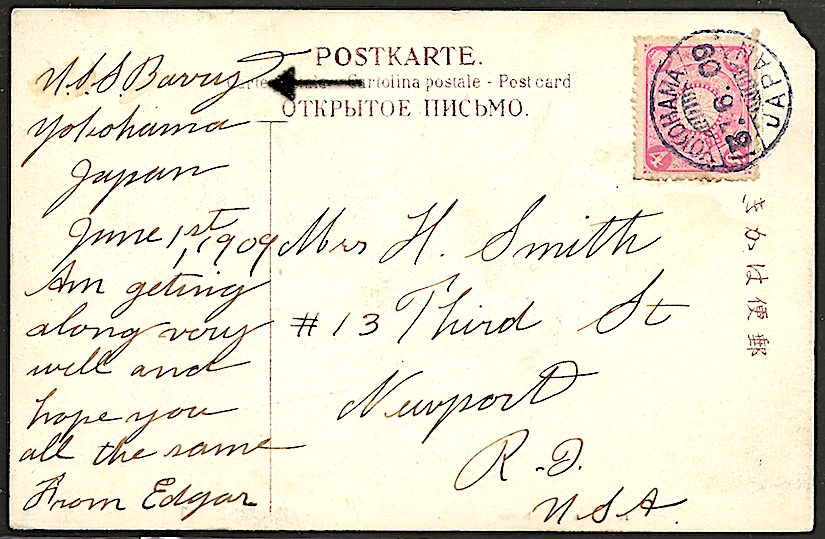 U.S.S. Barry
Yokohama
Japan
June 1st, 1909
Am geting
along very
well and
hope you
all the same
From Edgar
POSTKARTE.
Cartolina postale - Post card
ОТКРЫТОЕ ПИСЬМО.
Mrs H. Smith
#13 Third St
Newport
R.I.
U.S.A.
YOKOHAMA
JAPAN
2.6.09
4
郵便はかき